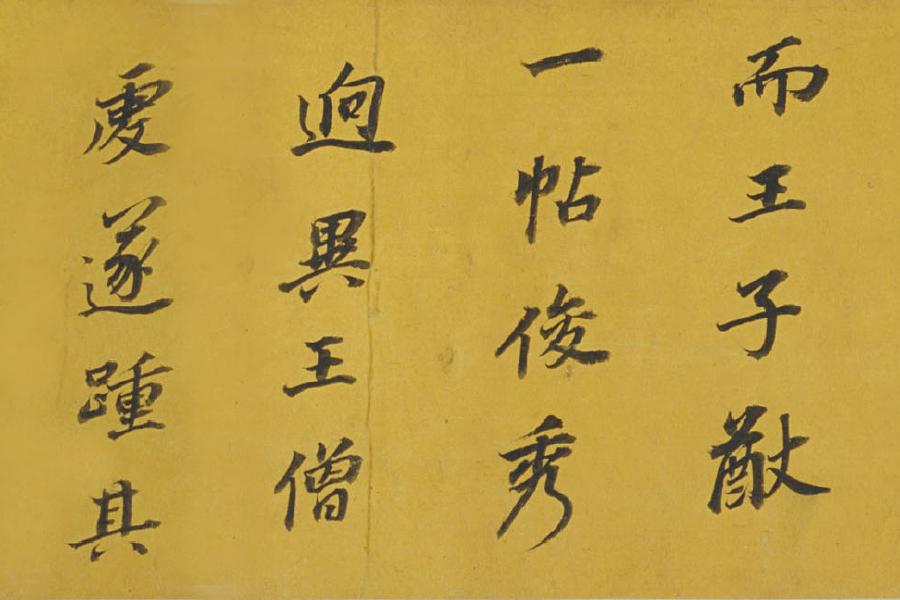 而王子猷
一帖俊秀
逈異王僧
虔遂踵其